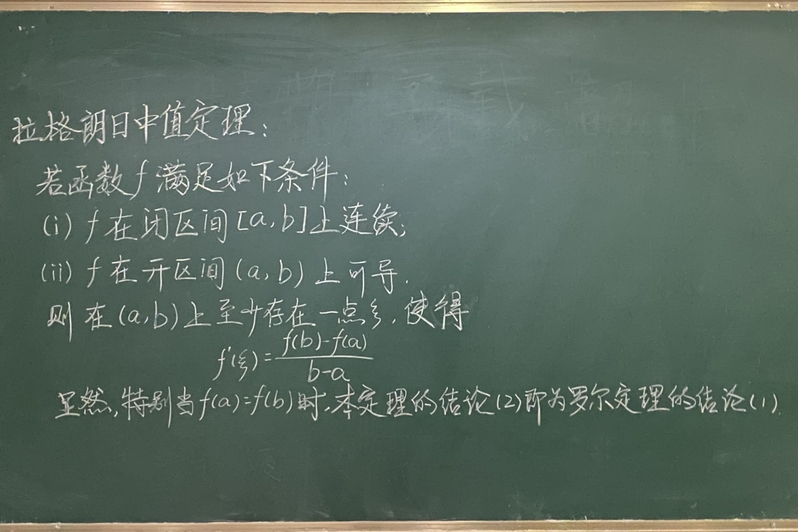 拉格朗日中值定理:
若函数f满足如下条件:
(i) f在闭区间[a,b]上连续;
(ii) f在开区间(a,b)上可导.
则在(a,b)上至少存在一点ξ,使得
f'(ξ)=\frac{f(b)-f(a)}{b-a}
显然,特别当f(a)=f(b)时,本定理的结论(2)即为罗尔定理的结论(1).